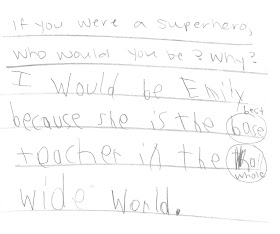 If you were a superhero,
who would you be? Why?
I would be Emily
because she is the base best
teacher in the hol whole
wide world.